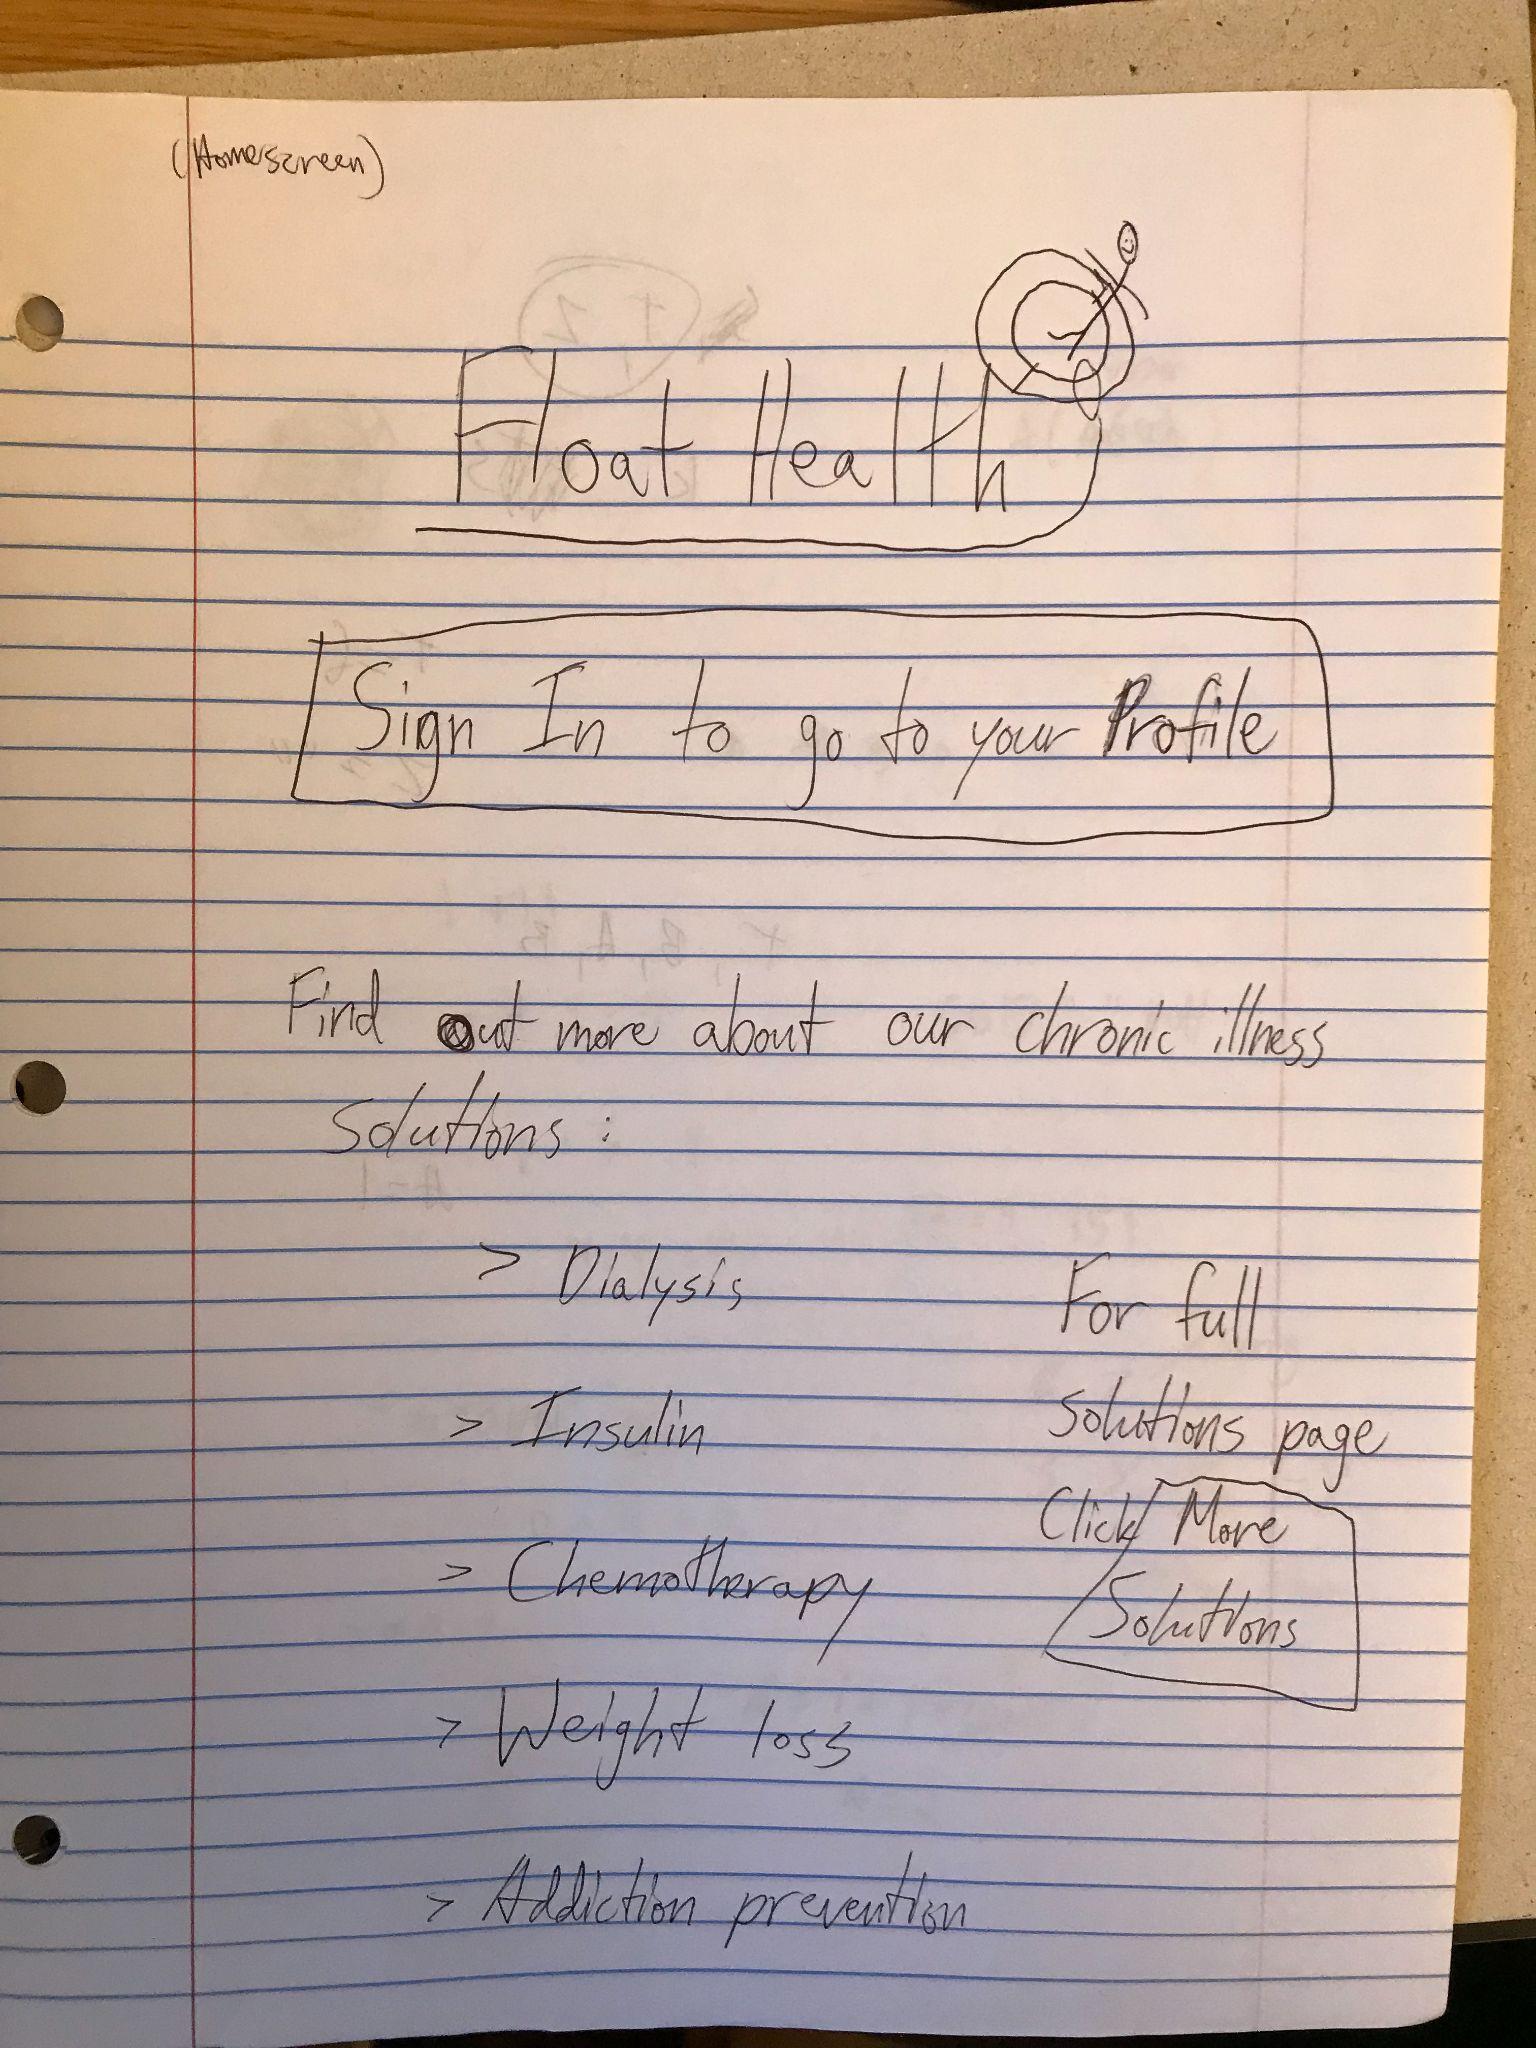 (Homescreen)
Float Health
Sign In to go to your Profile
Find out more about our chronic illness
solutions:
> Dialysis
> Insulin
> Chemotherapy
> Weight loss
> Addiction prevention
For full
solutions page
Click More
Solutions